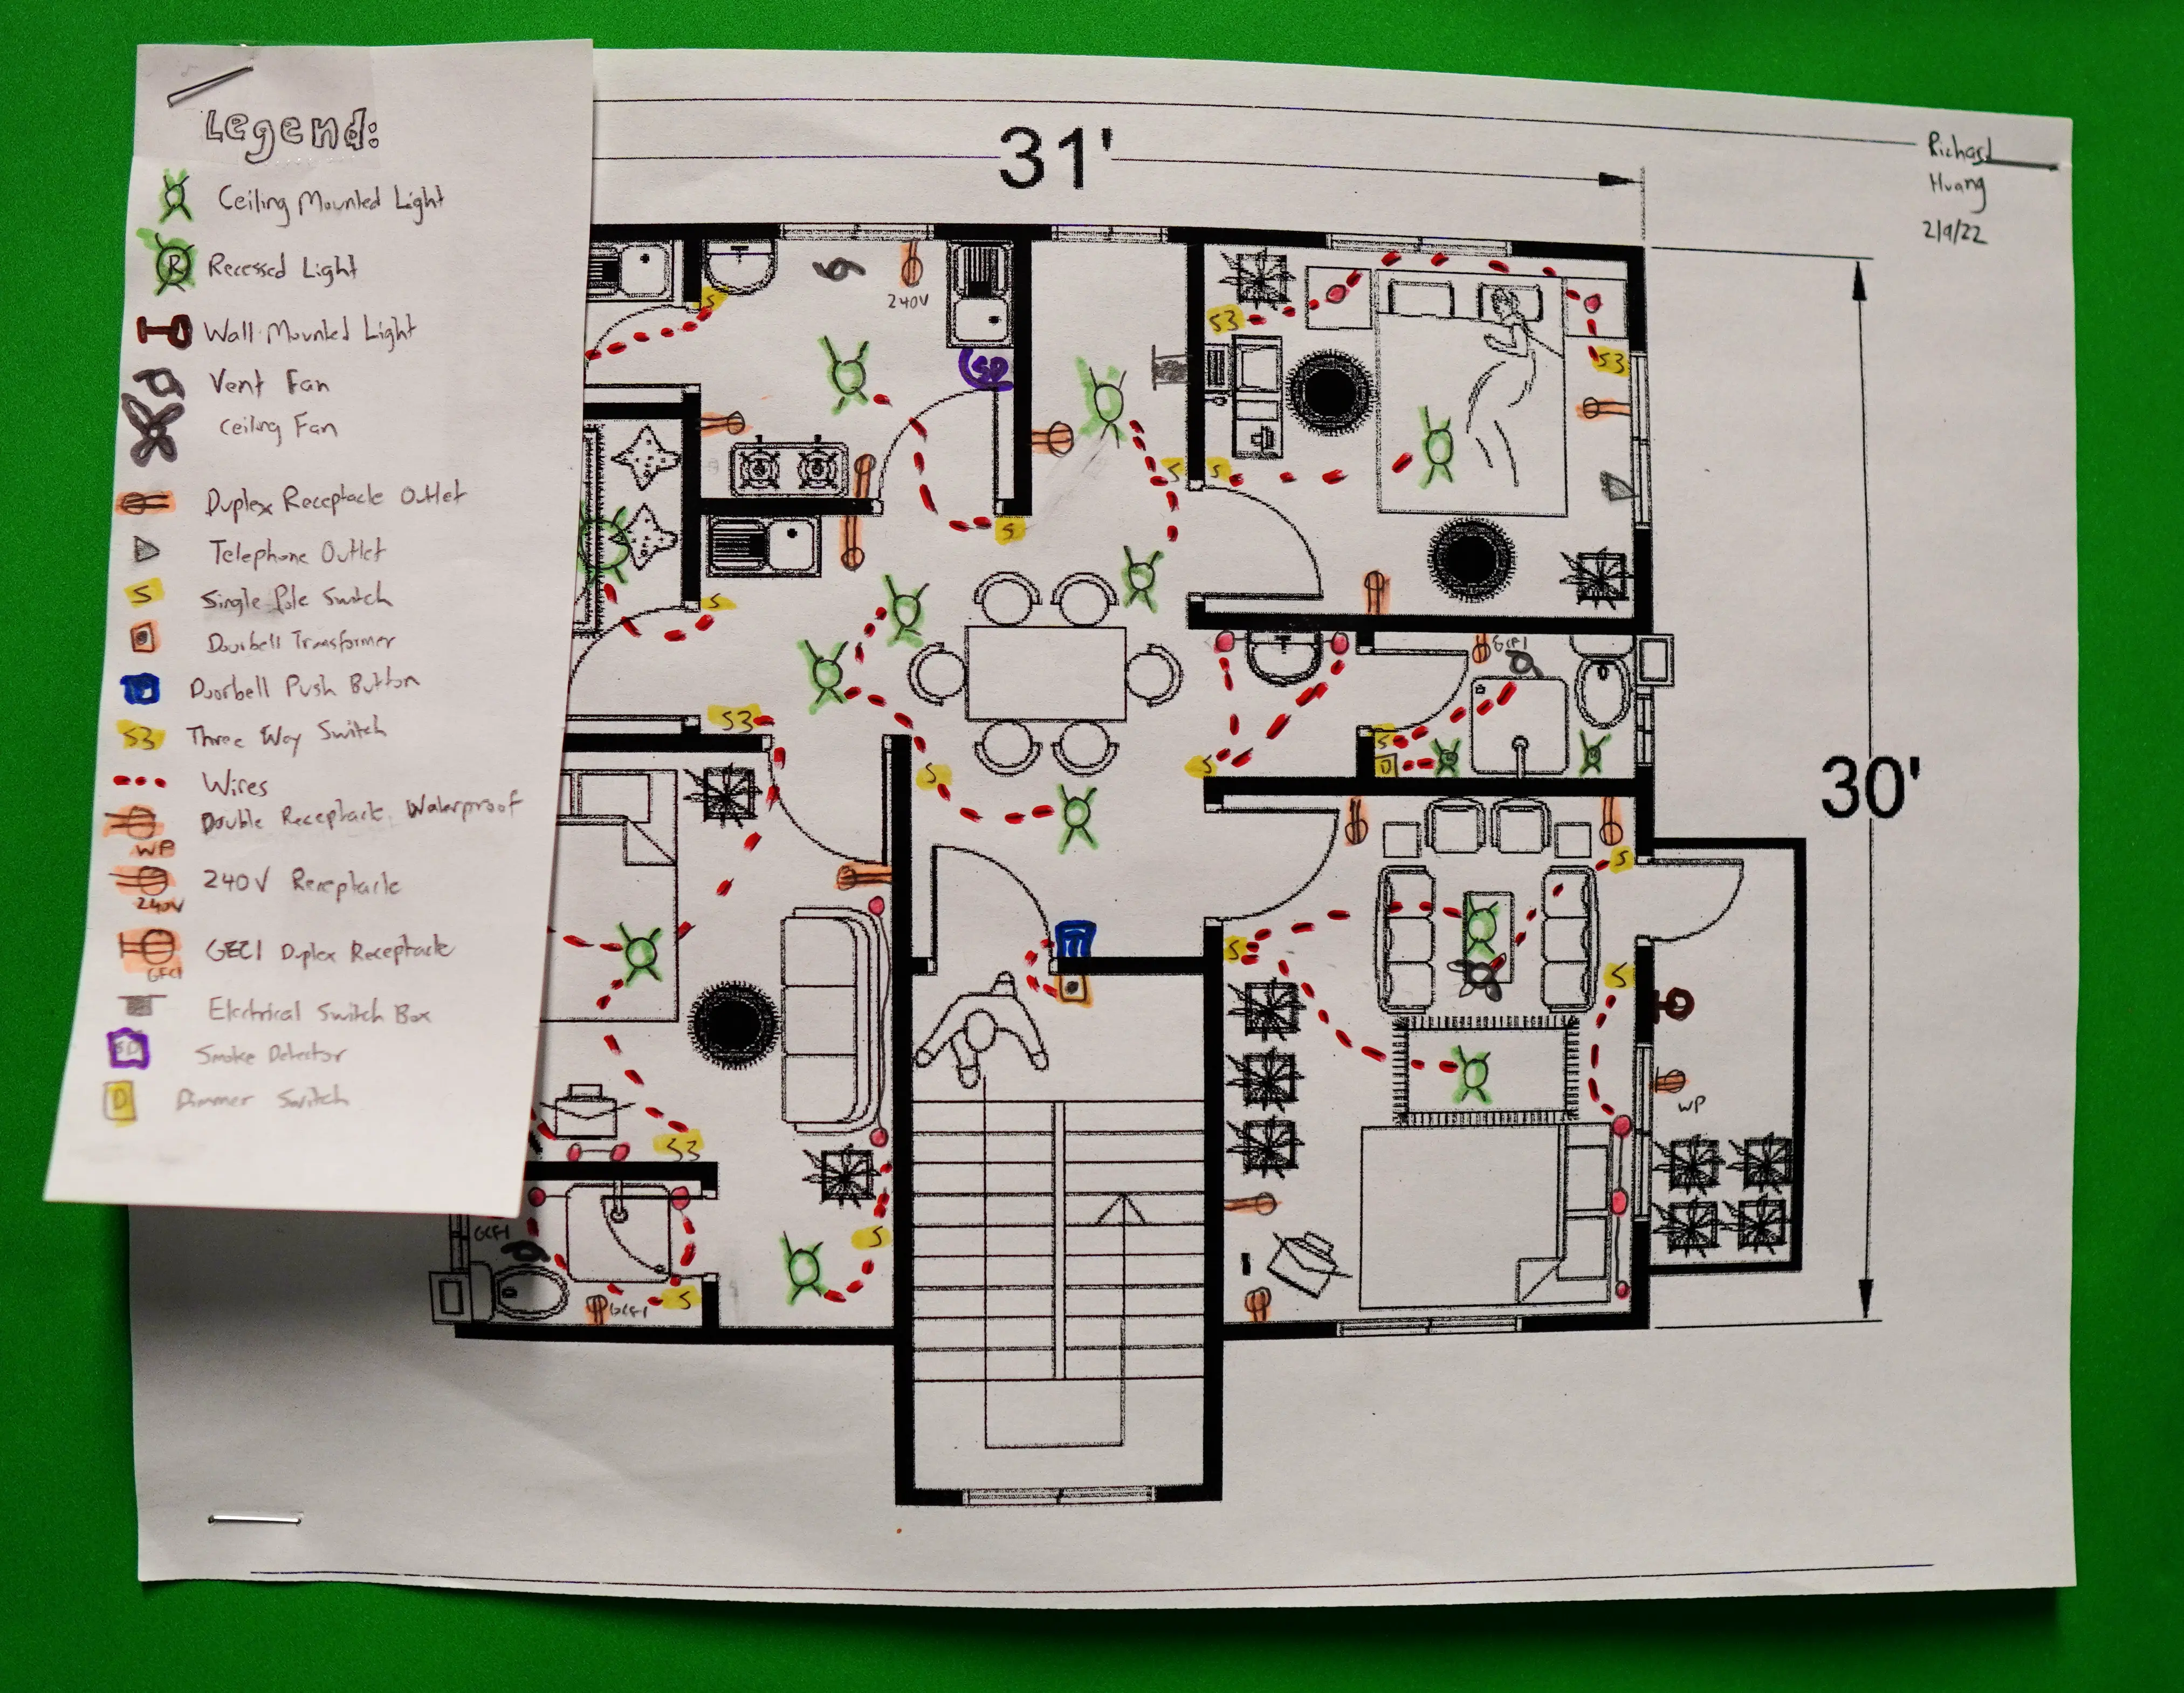 Legend:
Ceiling Mounted Light
R Recessed Light
Wall Mounted Light
Vent Fan
Ceiling Fan
Duplex Receptacle Outlet
Telephone Outlet
S Single Pole Switch
Doorbell Transformer
Doorbell Push Button
S3 Three Way Switch
Wires
Double Receptacle Waterproof
WP
240V Receptacle
240V
GECI Duplex Receptacle
GECI
Electrical Switch Box
SD Smoke Detector
D Dimmer Switch
31'
Richard
Huang
2/9/22
30'
S
240V
SD
S3
S3
S
S
S
S
GCFI
S3
S
S
S
D
S
S
S
WP
S3
GCFI
S
GCFI
S